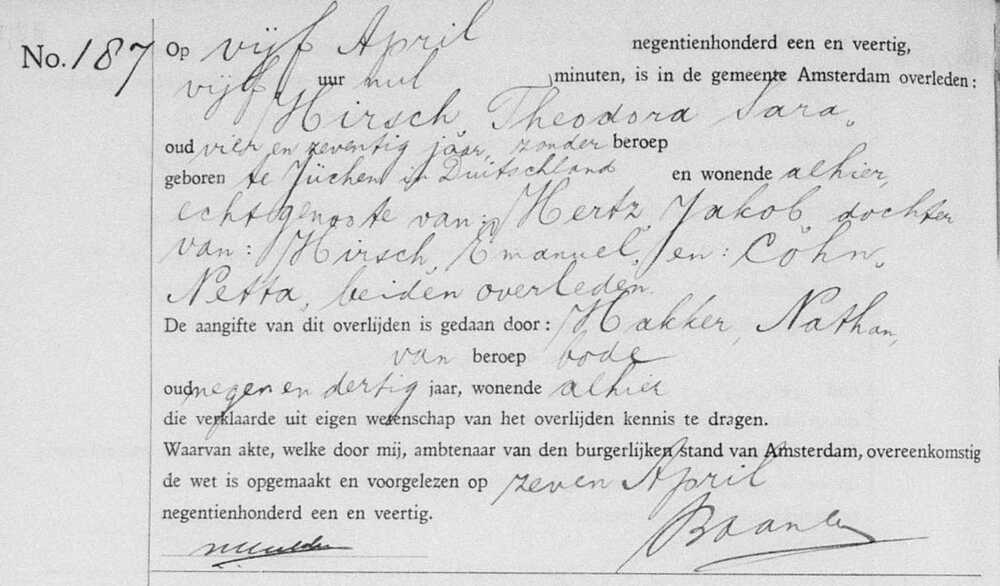 No. 187 Op vijf April negentienhonderd een en veertig,
vijf uur nul minuten, is in de gemeente Amsterdam overleden:
Hirsch, Theodora Sara,
oud vier en zeventig jaar, zonder beroep
geboren te Jüchen in Duitschland en wonende alhier,
echtgenoote van: Hertz, Jakob, dochter
van: Hirsch, Emanuel, en: Cohn,
Netta, beiden overleden.
De aangifte van dit overlijden is gedaan door: Hakker, Nathan,
van beroep bode
oud negen en dertig jaar, wonende alhier
die verklaarde uit eigen wetenschap van het overlijden kennis te dragen.
Waarvan akte, welke door mij, ambtenaar van den burgerlijken stand van Amsterdam, overeenkomstig
de wet is opgemaakt en voorgelezen op zeven April
negentienhonderd een en veertig.